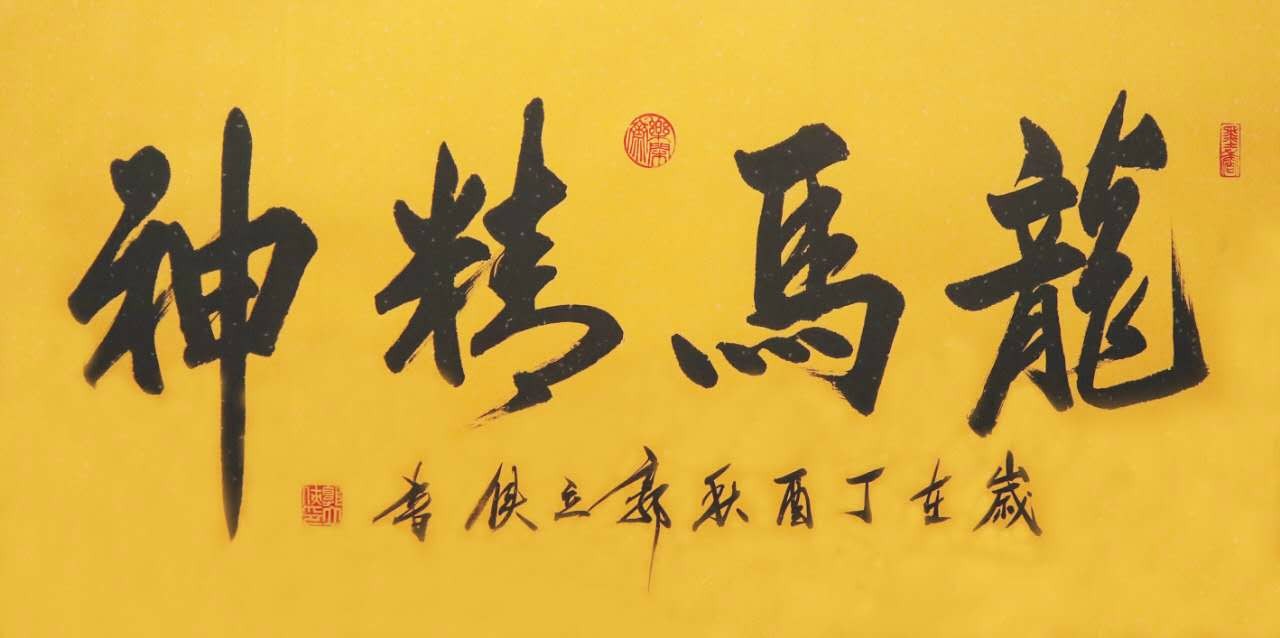 龍馬精神
歲在丁酉秋郭立俱書